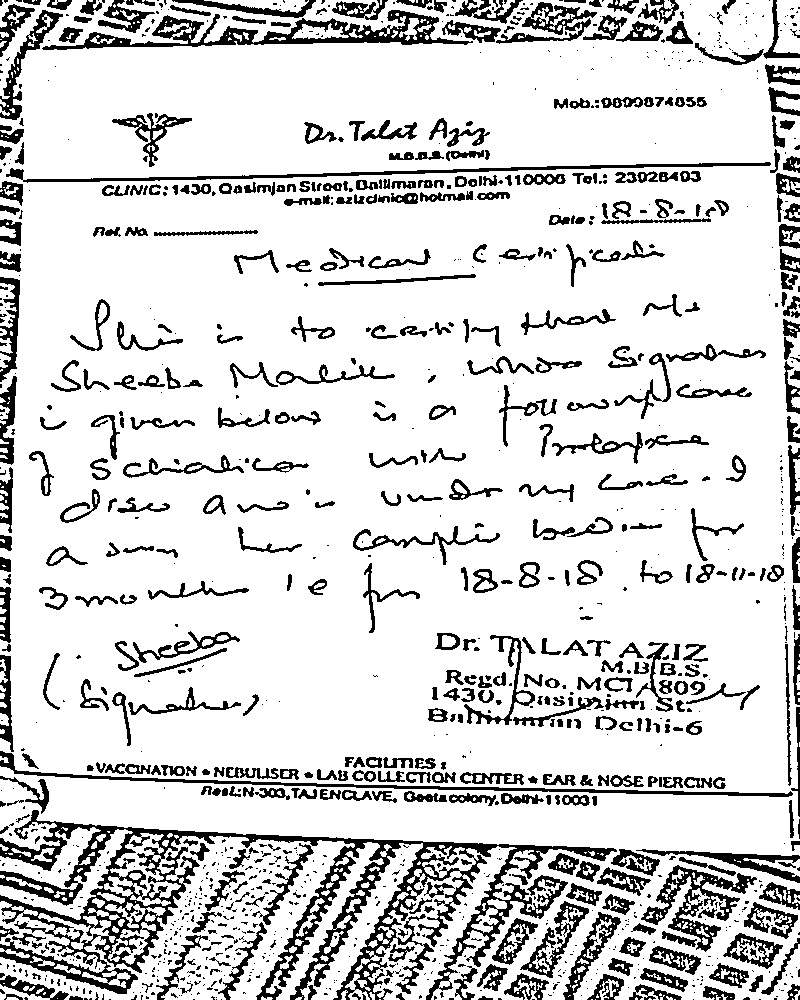 Mob.:9899874855
Dr. Talat Aziz
M.B.B.S. (Delhi)
CLINIC: 1430, Qasimjan Street, Ballimaran, Delhi-110006 Tel.: 23928493
e-mail: azizclinic@hotmail.com
Ref. No. Date: 18-8-18
Medical Certificate
This is to certify that Ms
Sheeba Malik, whose Signature
is given below is a follow up case
of Schiatica with Prolapse
disc and is under my care. I
her complete bed for
3 months i e from 18-8-18 to 18-11-18
Sheeba
(Signature)
Dr. TALAT AZIZ
M.B.B.S.
Regd. No. MCI A809
1430, Qasimjan St.
Ballimaran Delhi-6
FACILITIES :
• VACCINATION • NEBULISER • LAB COLLECTION CENTER • EAR & NOSE PIERCING
Resi.: N-303, TAJ ENCLAVE, Geeta colony, Delhi-110031